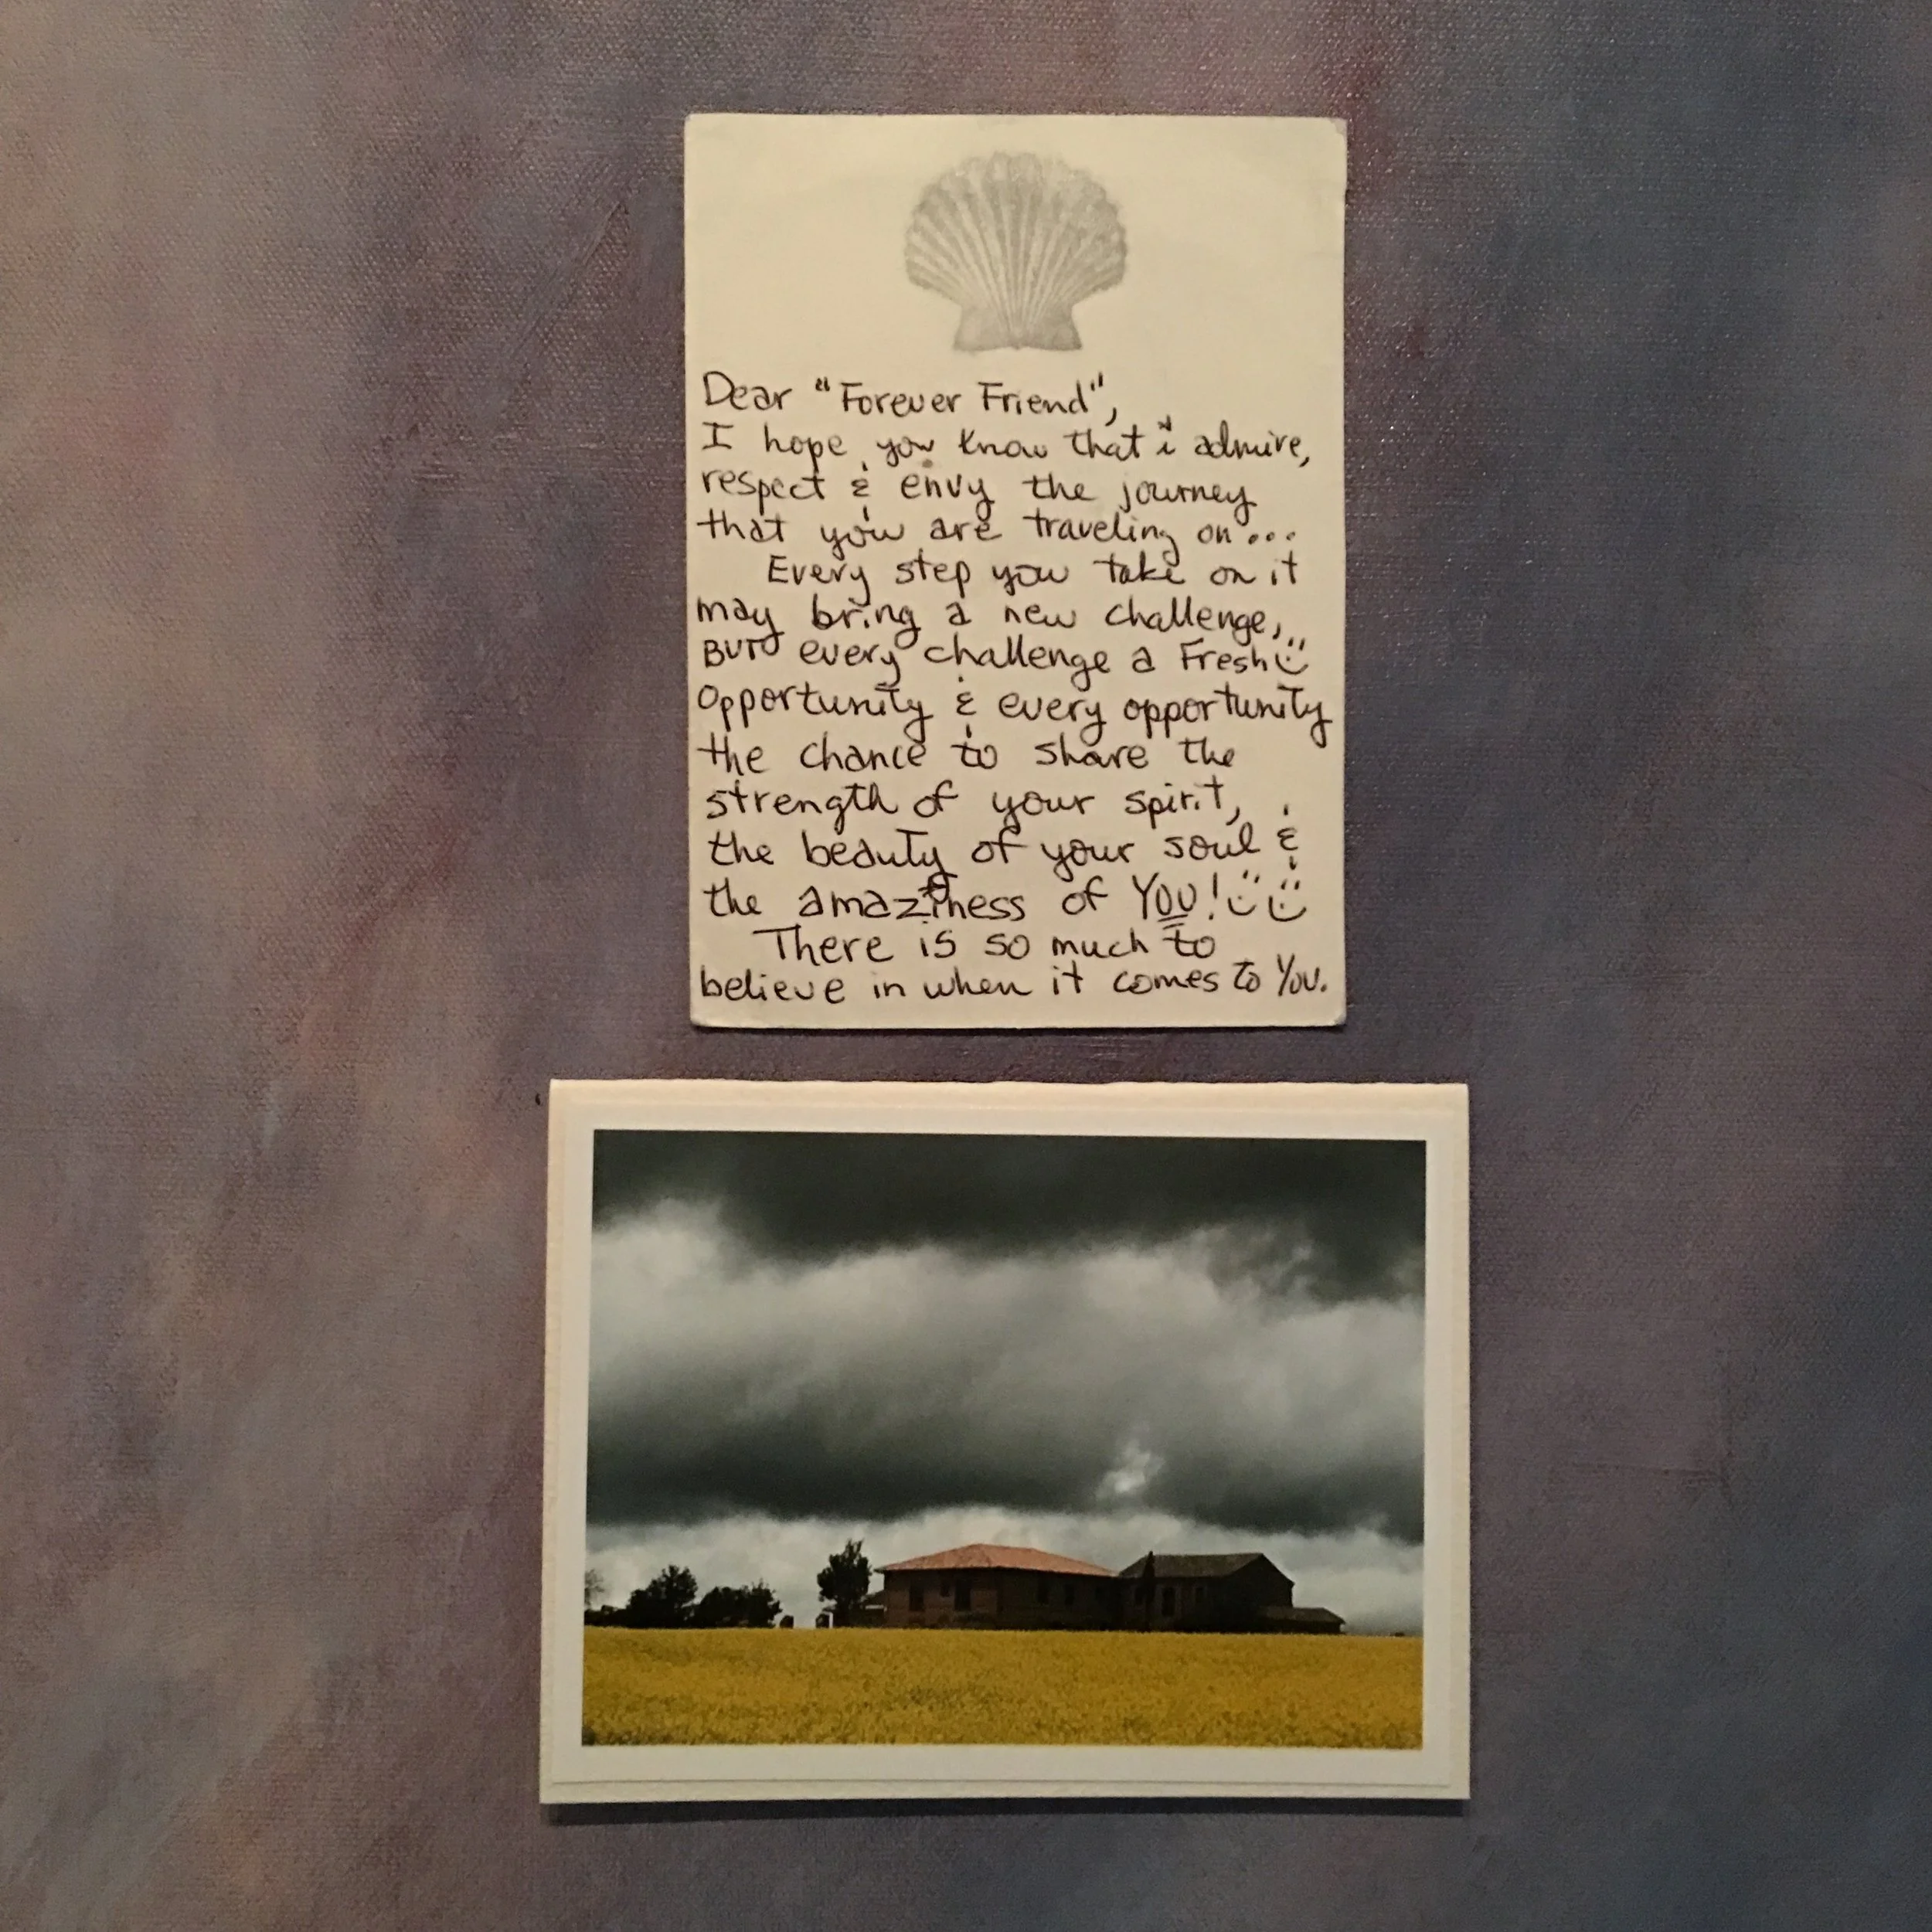 Dear "Forever Friend",
I hope you know that i admire,
respect & envy the journey
that you are traveling on...
Every step you take on it
may bring a new challenge,
BUT every challenge a Fresh
opportunity & every opportunity
the chance to share the
strength of your spirit,
the beauty of your soul &
the amaziness of YOU!
There is so much to
believe in when it comes to YOU.